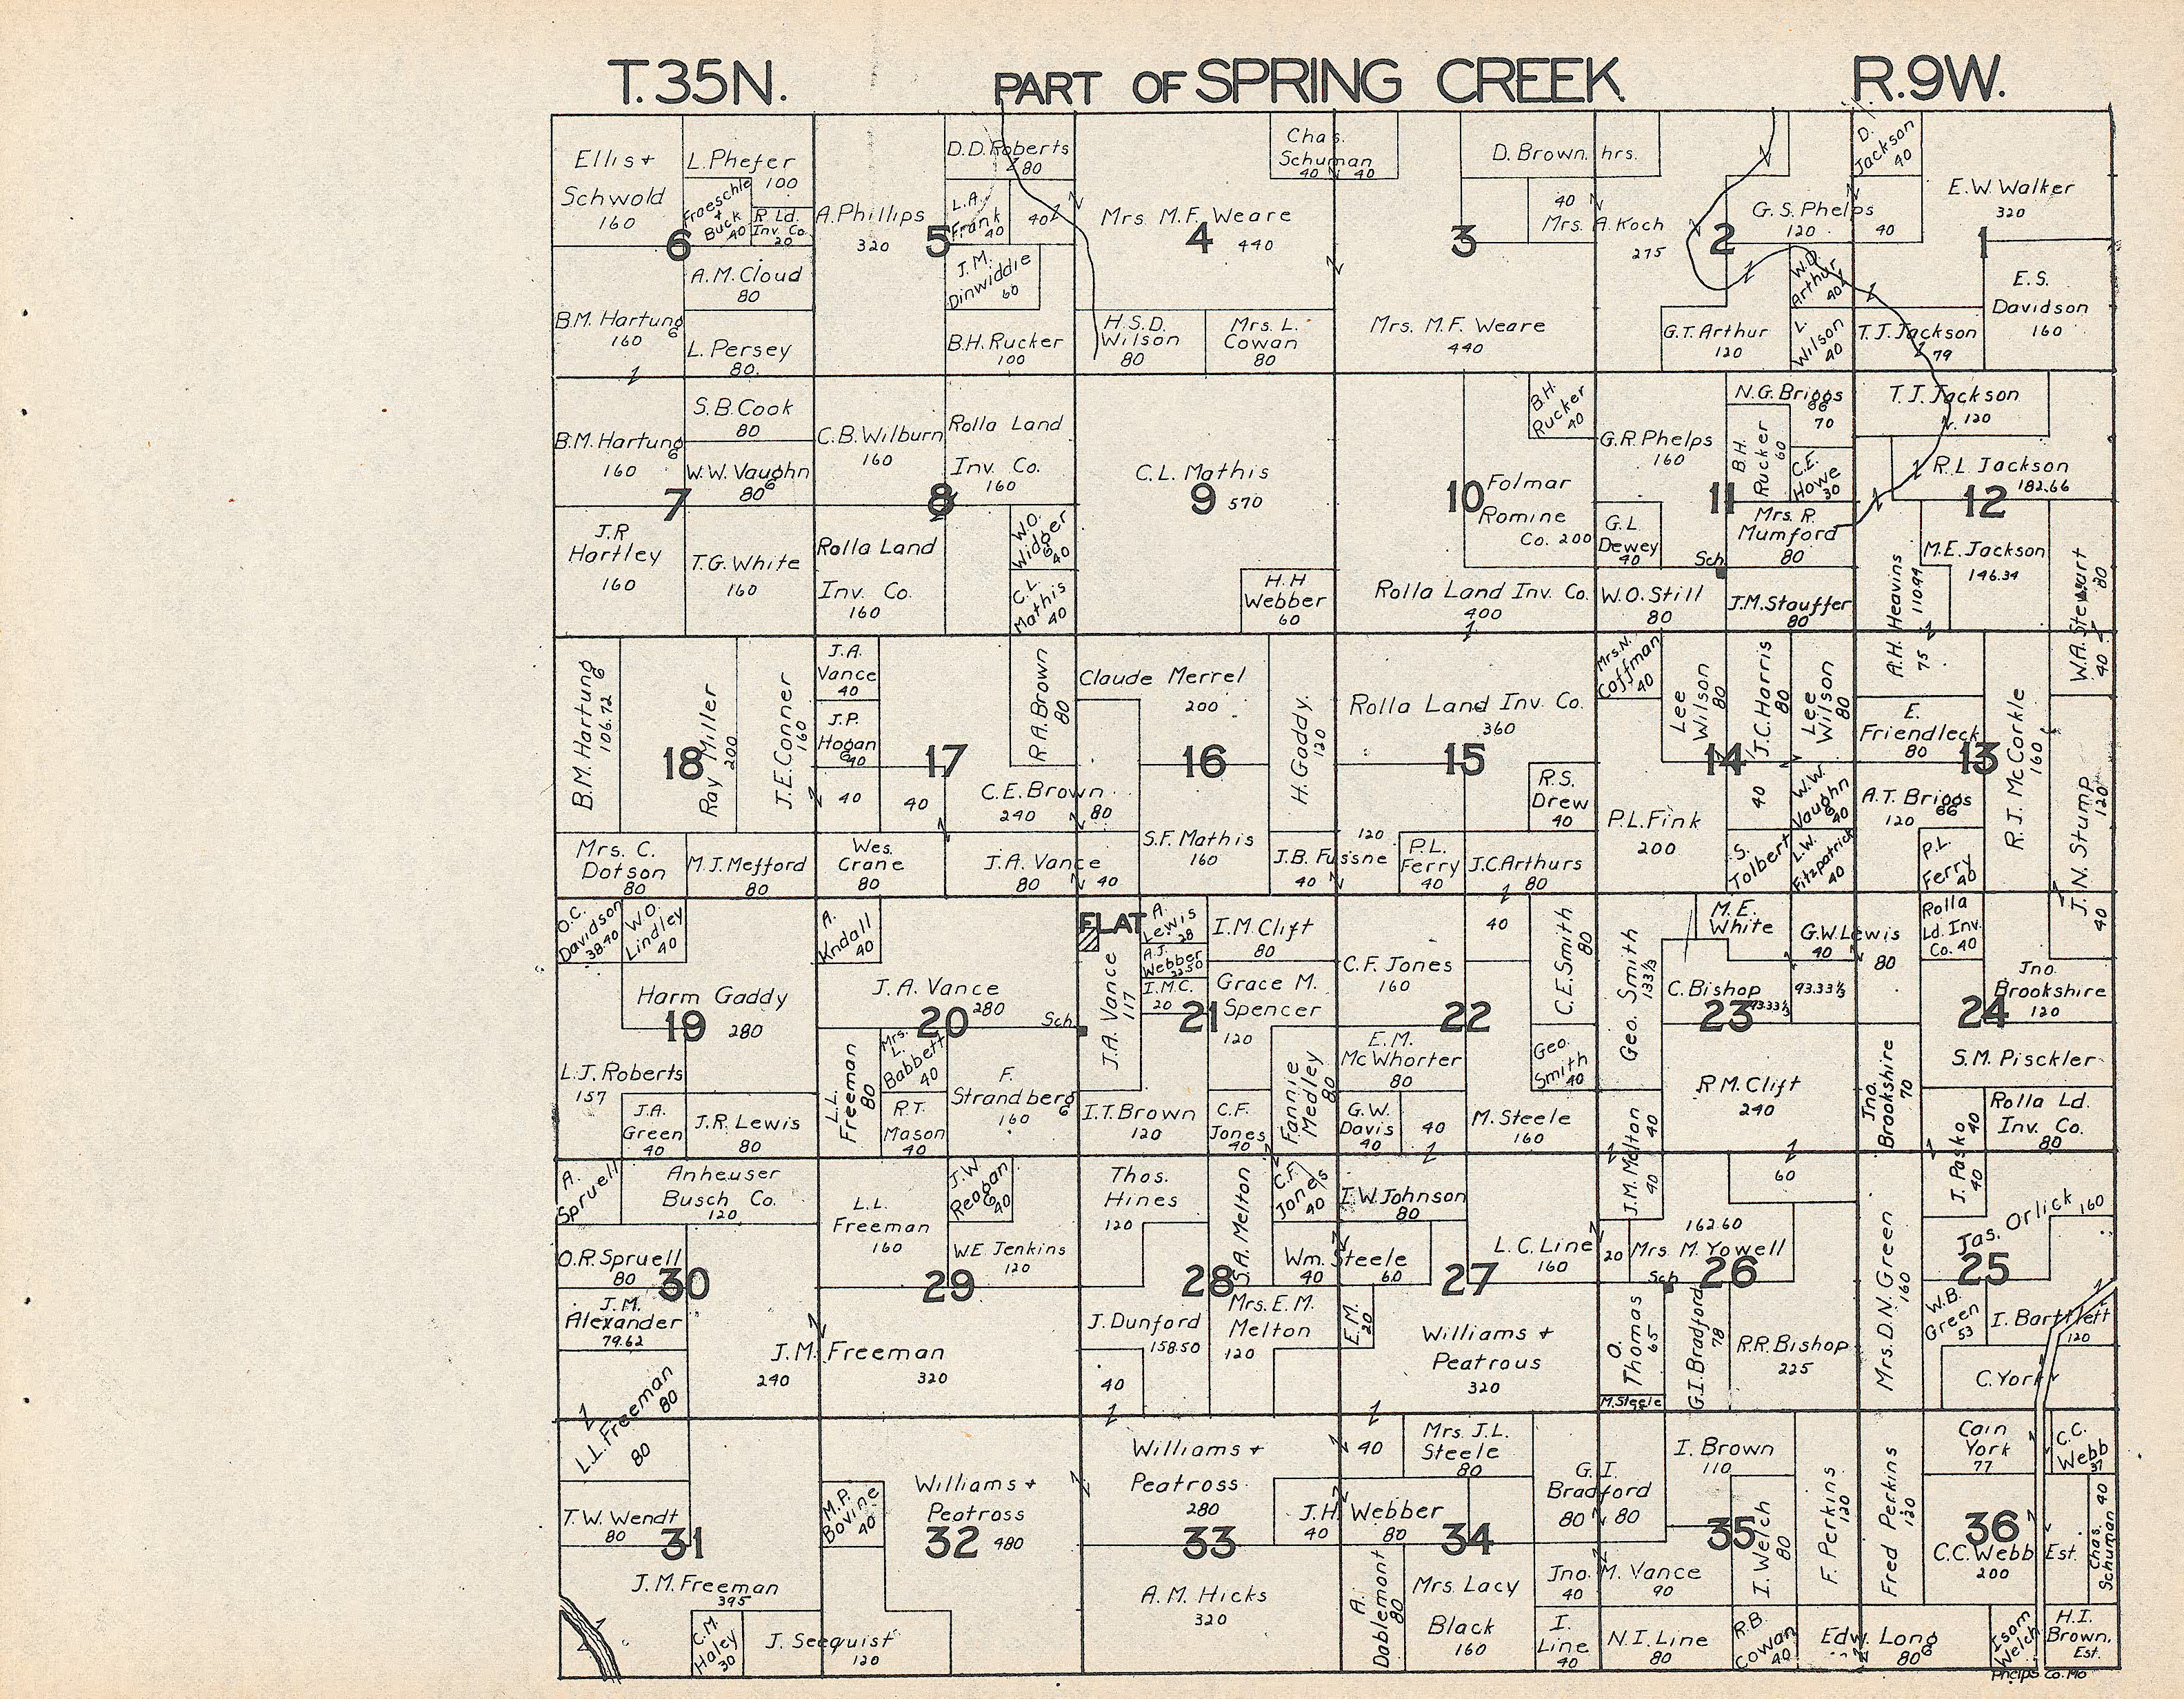 T.35N.
PART OF SPRING CREEK
R.9W.
Ellis +
Schwold
160
L. Phefer
100
Froeschle
+
Buck
40
R. Ld.
Inv. Co.
20
6
A.M. Cloud
80
B.M. Hartung
6
160
L. Persey
80.
A. Phillips
320
5
D.D. Roberts
80
L.A.
Frank
40
40
J.M.
Dinwiddie
60
B.H. Rucker
100
Mrs. M.F. Weare
4
440
Chas.
Schuman
40 40
H.S.D.
Wilson
80
Mrs. L.
Cowan
80
D. Brown. hrs.
3
40
Mrs. A. Koch
275
Mrs. M.F. Weare
440
2
G.S. Phelps
120
40
W.D.
Arthur
40
G.T. Arthur
120
L.
Wilson
40
D.
Jackson
40
E.W. Walker
320
1
E.S.
Davidson
160
T.J. Jackson
79
B.M. Hartung
6
160
S.B. Cook
80
W.W. Vaughn
6
80
7
J.R
Hartley
160
T.G. White
160
C.B. Wilburn
160
Rolla Land
Inv. Co.
160
8
Rolla Land
Inv. Co.
160
W.O.
Widger
6
40
C.L.
Mathis
40
C.L. Mathis
9
570
H.H
Webber
60
B.H.
Rucker
40
10
Folmar
Romine
Co. 200
Rolla Land Inv. Co.
400
G.R. Phelps
160
N.G. Briggs
66
70
B.H.
Rucker
60
C.E.
Howe
30
11
G.L
Dewey
40
Mrs. R.
Mumford
80
Sch.
W.O. Still
80
J.M. Stouffer
80
T.J. Jackson
120
R.L. Jackson
182.66
12
M.E. Jackson
146.34
A.H. Heavins
110.94
75
W.A. Stewart
80
40
B.M. Hartung
6
106.72
18
Ray Miller
200
J.E. Conner
160
Mrs. C.
Dotson
80
M.J. Mefford
80
J.A.
Vance
40
J.P.
Hogan
6
40
17
R.A. Brown
80
40
40
C.E. Brown
240
80
Wes.
Crane
80
J.A. Vance
80
40
Claude Merrel
200
16
H. Gaddy.
120
S.F. Mathis
160
J.B. Fussne
40
120
Rolla Land Inv. Co.
360
15
R.S.
Drew
40
P.L.
Ferry
40
J.C. Arthurs
80
Mrs. N.
Coffman
40
Lee
Wilson
80
J.C. Harris
80
Lee
Wilson
80
14
40
W.W.
Vaughn
6
40
P.L. Fink
200
S.
Tolbert
L.W.
Fitzpatrick
40
E.
Friendleck
80
13
R.J. McCorkle
160
A.T. Briggs
66
120
P.L.
Ferry
40
J.N. Stump
120
40
O.C.
Davidson
38.40
W.O.
Lindley
40
Harm Gaddy
19
280
L.J. Roberts
157
J.A.
Green
40
J.R. Lewis
80
A.
Kndall
40
J.A. Vance
280
20
Sch.
L.L.
Freeman
80
Mrs.
L.
Babbett
40
R.T.
Mason
40
F.
Strandberg
6
160
FLAT
A.
Lewis
28
A.J.
Webber
22.50
I.M.C.
20
J.A. Vance
117
21
I.M. Clift
80
Grace M.
Spencer
120
Fannie
Medley
80
I.T. Brown
120
C.F.
Jones
40
C.F. Jones
160
40
C.E. Smith
80
22
E.M.
McWhorter
80
Geo.
Smith
40
G.W.
Davis
40
40
M. Steele
160
Geo. Smith
133⅓
M.E.
White
G.W. Lewis
40
80
C. Bishop
93.33⅓
93.33⅓
23
R.M. Clift
240
J.M. Melton
40
40
Rolla
Ld. Inv.
Co. 40
Jno.
Brookshire
120
24
S.M. Pisckler
Jno.
Brookshire
70
J. Pasko
40
40
Rolla Ld.
Inv. Co.
80
A.
Spruell
Anheuser
Busch Co.
120
O.R. Spruell
80
30
J.M.
Alexander
79.62
J.M. Freeman
240
320
L.L. Freeman
80
80
L.L.
Freeman
160
J.W.
Reagan
6
40
W.E. Jenkins
120
29
Thos.
Hines
120
S.A. Melton
C.F.
Jones
40
28
Wm. Steele
40
60
J. Dunford
158.50
40
Mrs. E.M.
Melton
120
I.W. Johnson
80
27
L.C. Line
160
20
E.M.
20
Williams +
Peatrous
320
60
162.60
Mrs. M. Yowell
26
Sch
O.
Thomas
65
M. Steele
G.I. Bradford
78
R.R. Bishop
225
Mrs. D.N. Green
160
Jas. Orlick
160
25
W.B.
Green
53
I. Bartlett
120
C. York
T.W. Wendt
80
31
J.M. Freeman
395
C.M.
Haley
30
J. Seequist
120
M.P.
Bovine
40
Williams +
Peatross
32
480
Williams +
Peatross
280
33
A.M. Hicks
320
J.H. Webber
40
80
40
Mrs. J.L.
Steele
80
34
G.I.
Bradford
80
80
A.
Dablemont
80
Mrs. Lacy
Black
160
Jno. M. Vance
40
90
I.
Line
40
N.I. Line
80
I. Brown
110
35
I. Welch
80
F. Perkins
120
R.B.
Cowan
40
Edw. Long
6
80
Fred Perkins
120
Cain
York
77
C.C.
Webb
37
36
C.C. Webb Est.
200
Chas.
Schuman 40
Isom
Welch
H.I.
Brown.
Est.
Phelps Co. Mo